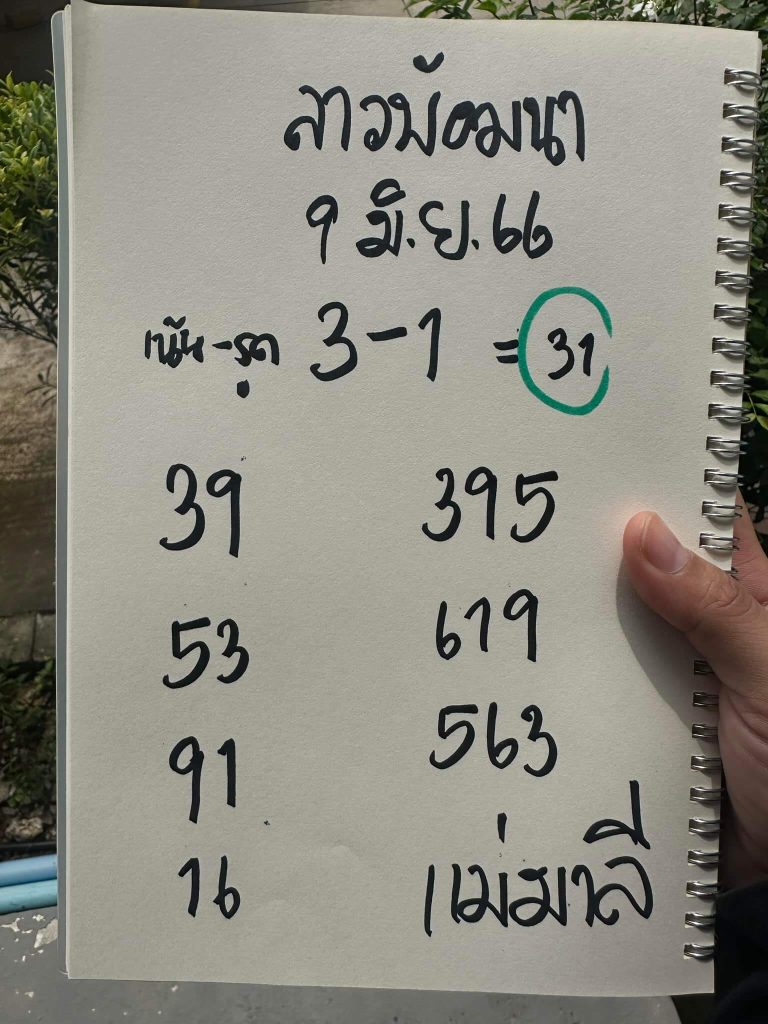 ลาวพ้อมนา
9 มิ.ย.66
เน้น-รูด 3-1 = 31
39 395
53 619
91 563
16 แม่มาลี